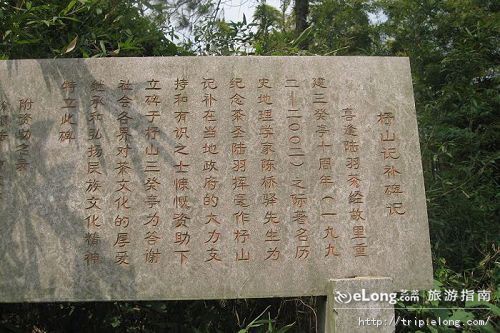 杼山记补碑记
喜逢陆羽茶经故里重
建三癸亭十周年（一九九
二—二〇〇二）之际著名历
史地理学家陈桥驿先生为
纪念茶圣陆羽挥毫作杼山
记补在当地政府的大力支
持和有识之士慷慨资助下
立碑于杼山三癸亭为答谢
社会各界对茶文化的厚爱
继承和弘扬民族文化精神
特立此碑
附资助
eLong.com 旅游指南
http://trip.elong.com/